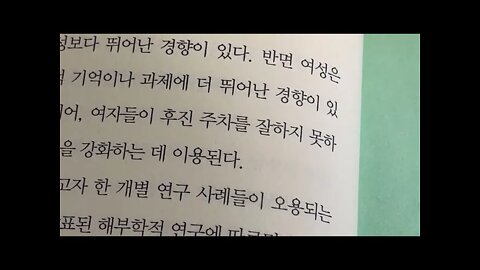 성보다 뛰어난 경향이 있다. 반면 여성은
기억이나 과제에 더 뛰어난 경향이 있
여자들이 후진 주차를 잘하지 못하
을 강화하는 데 이용된다.
고자 한 개별 연구 사례들이 오용되는
표된 해부학적 연구에